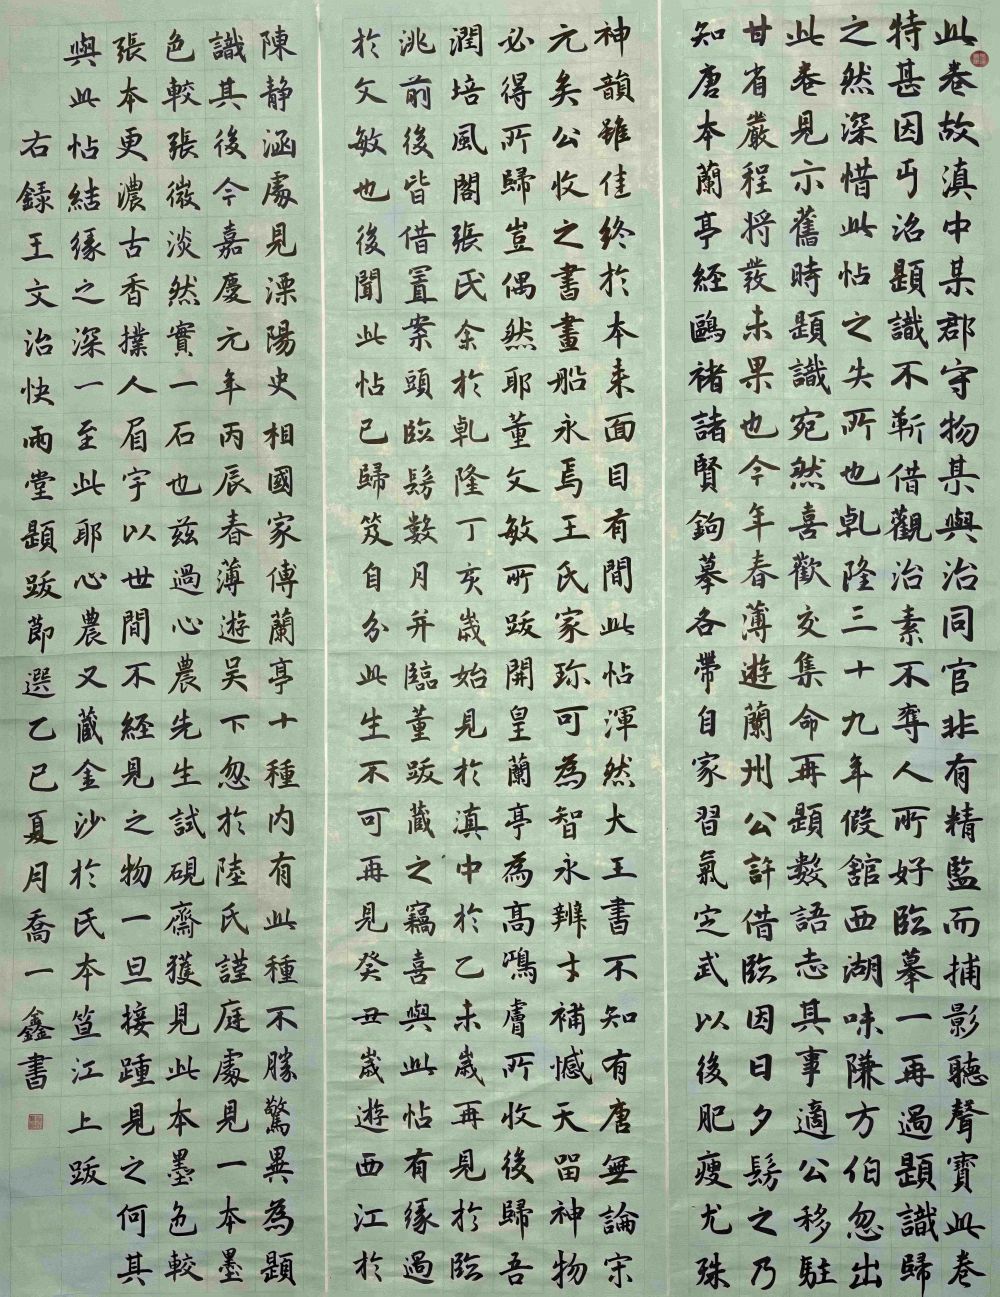 此卷故滇中某郡守物某與治同官非有精監而捕影聽聲寶此卷
特甚因丐洺題識不靳借觀治素不奪人所好臨摹一再過題識歸
之然深惜此帖之失所也乹隆三十九年假舘西湖味隒方伯忽出
此卷見示舊時題識宛然喜歡交集命再題數語志其事適公移駐
甘省嚴程将發未果也今年春薄遊蘭州公許借臨因日夕髣之乃
知唐本蘭亭經鷗褚諸賢鉤摹各帶自家習氣定武以後肥瘦尤殊
神韻雖佳終於本来面目有間此帖渾然大王書不知有唐無論宋
元矣公收之書畫船永焉王氏家珎可為智永辨才補憾天留神物
必得所歸豈偶然耶董文敏所跋開皇蘭亭為高鴻膚所收後歸吾
潤培風閣張氏余於乹隆丁亥歲始見於滇中於乙未歲再見於臨
洮前後皆借置案頭臨髣數月并臨董跋藏之竊喜與此帖有緣過
於文敏也後聞此帖已歸笈自分此生不可再見癸丑歲遊西江於
陳静涵處見溧陽史相國家傳蘭亭十種内有此種不勝驚異為題
識其後今嘉慶元年丙辰春薄遊吴下忽於陸氏謹庭處見一本墨
色較張微淡然實一石也兹過心農先生試硯齋獲見此本墨色較
張本更濃古香撲人眉宇以世間不經見之物一旦接踵見之何其
與此帖結緣之深一至此耶心農又藏金沙於氏本笪江上跋
右録王文治快雨堂題跋節選乙巳夏月喬一鑫書